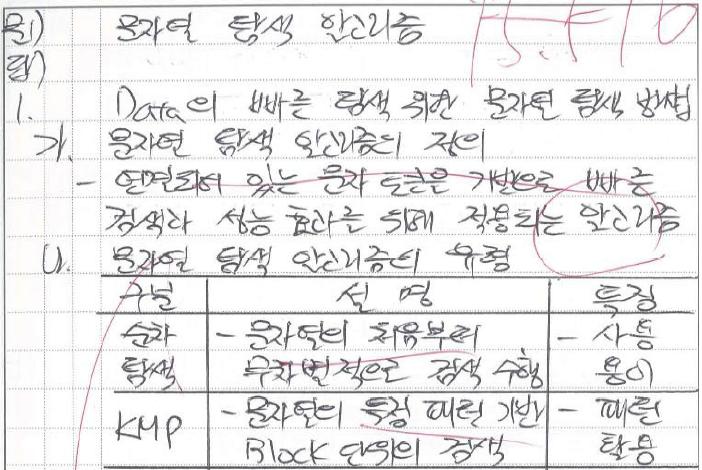 문1) 문자열 탐색 알고리즘
답)
1. Data의 빠른 탐색 위한 문자열 탐색 방법
가. 문자열 탐색 알고리즘의 정의
- 연결되어 있는 문자 토큰을 기반으로 빠른
검색과 성능 효과를 위해 적용되는 알고리즘
나. 문자열 탐색 알고리즘의 유형
구분 설명 특징
순차 - 문자열의 처음부터 - 사용
탐색 무차별적으로 검색 수행 용이
KMP - 문자열의 특정 패턴 기반 - 패턴
Block 단위의 검색 활용